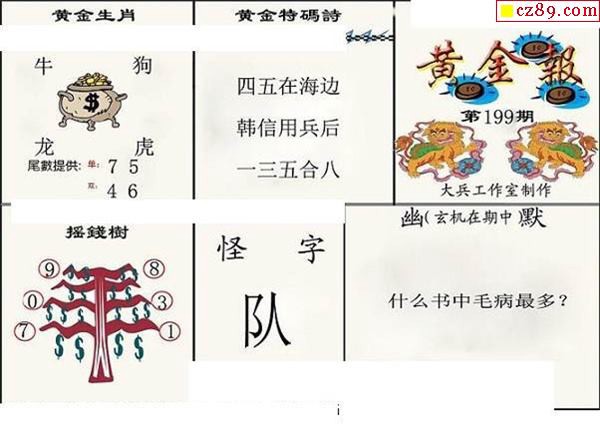 黄金生肖
牛 狗
龙 虎
尾數提供: 单: 7 5
双: 4 6
黄金特碼詩
四五在海边
韩信用兵后
一三五合八
cz89.com
黄金報
第199期
大兵工作室制作
摇錢樹
9 8
0 3
7 1
怪 字
队
幽(玄机在期中)默
什么书中毛病最多?